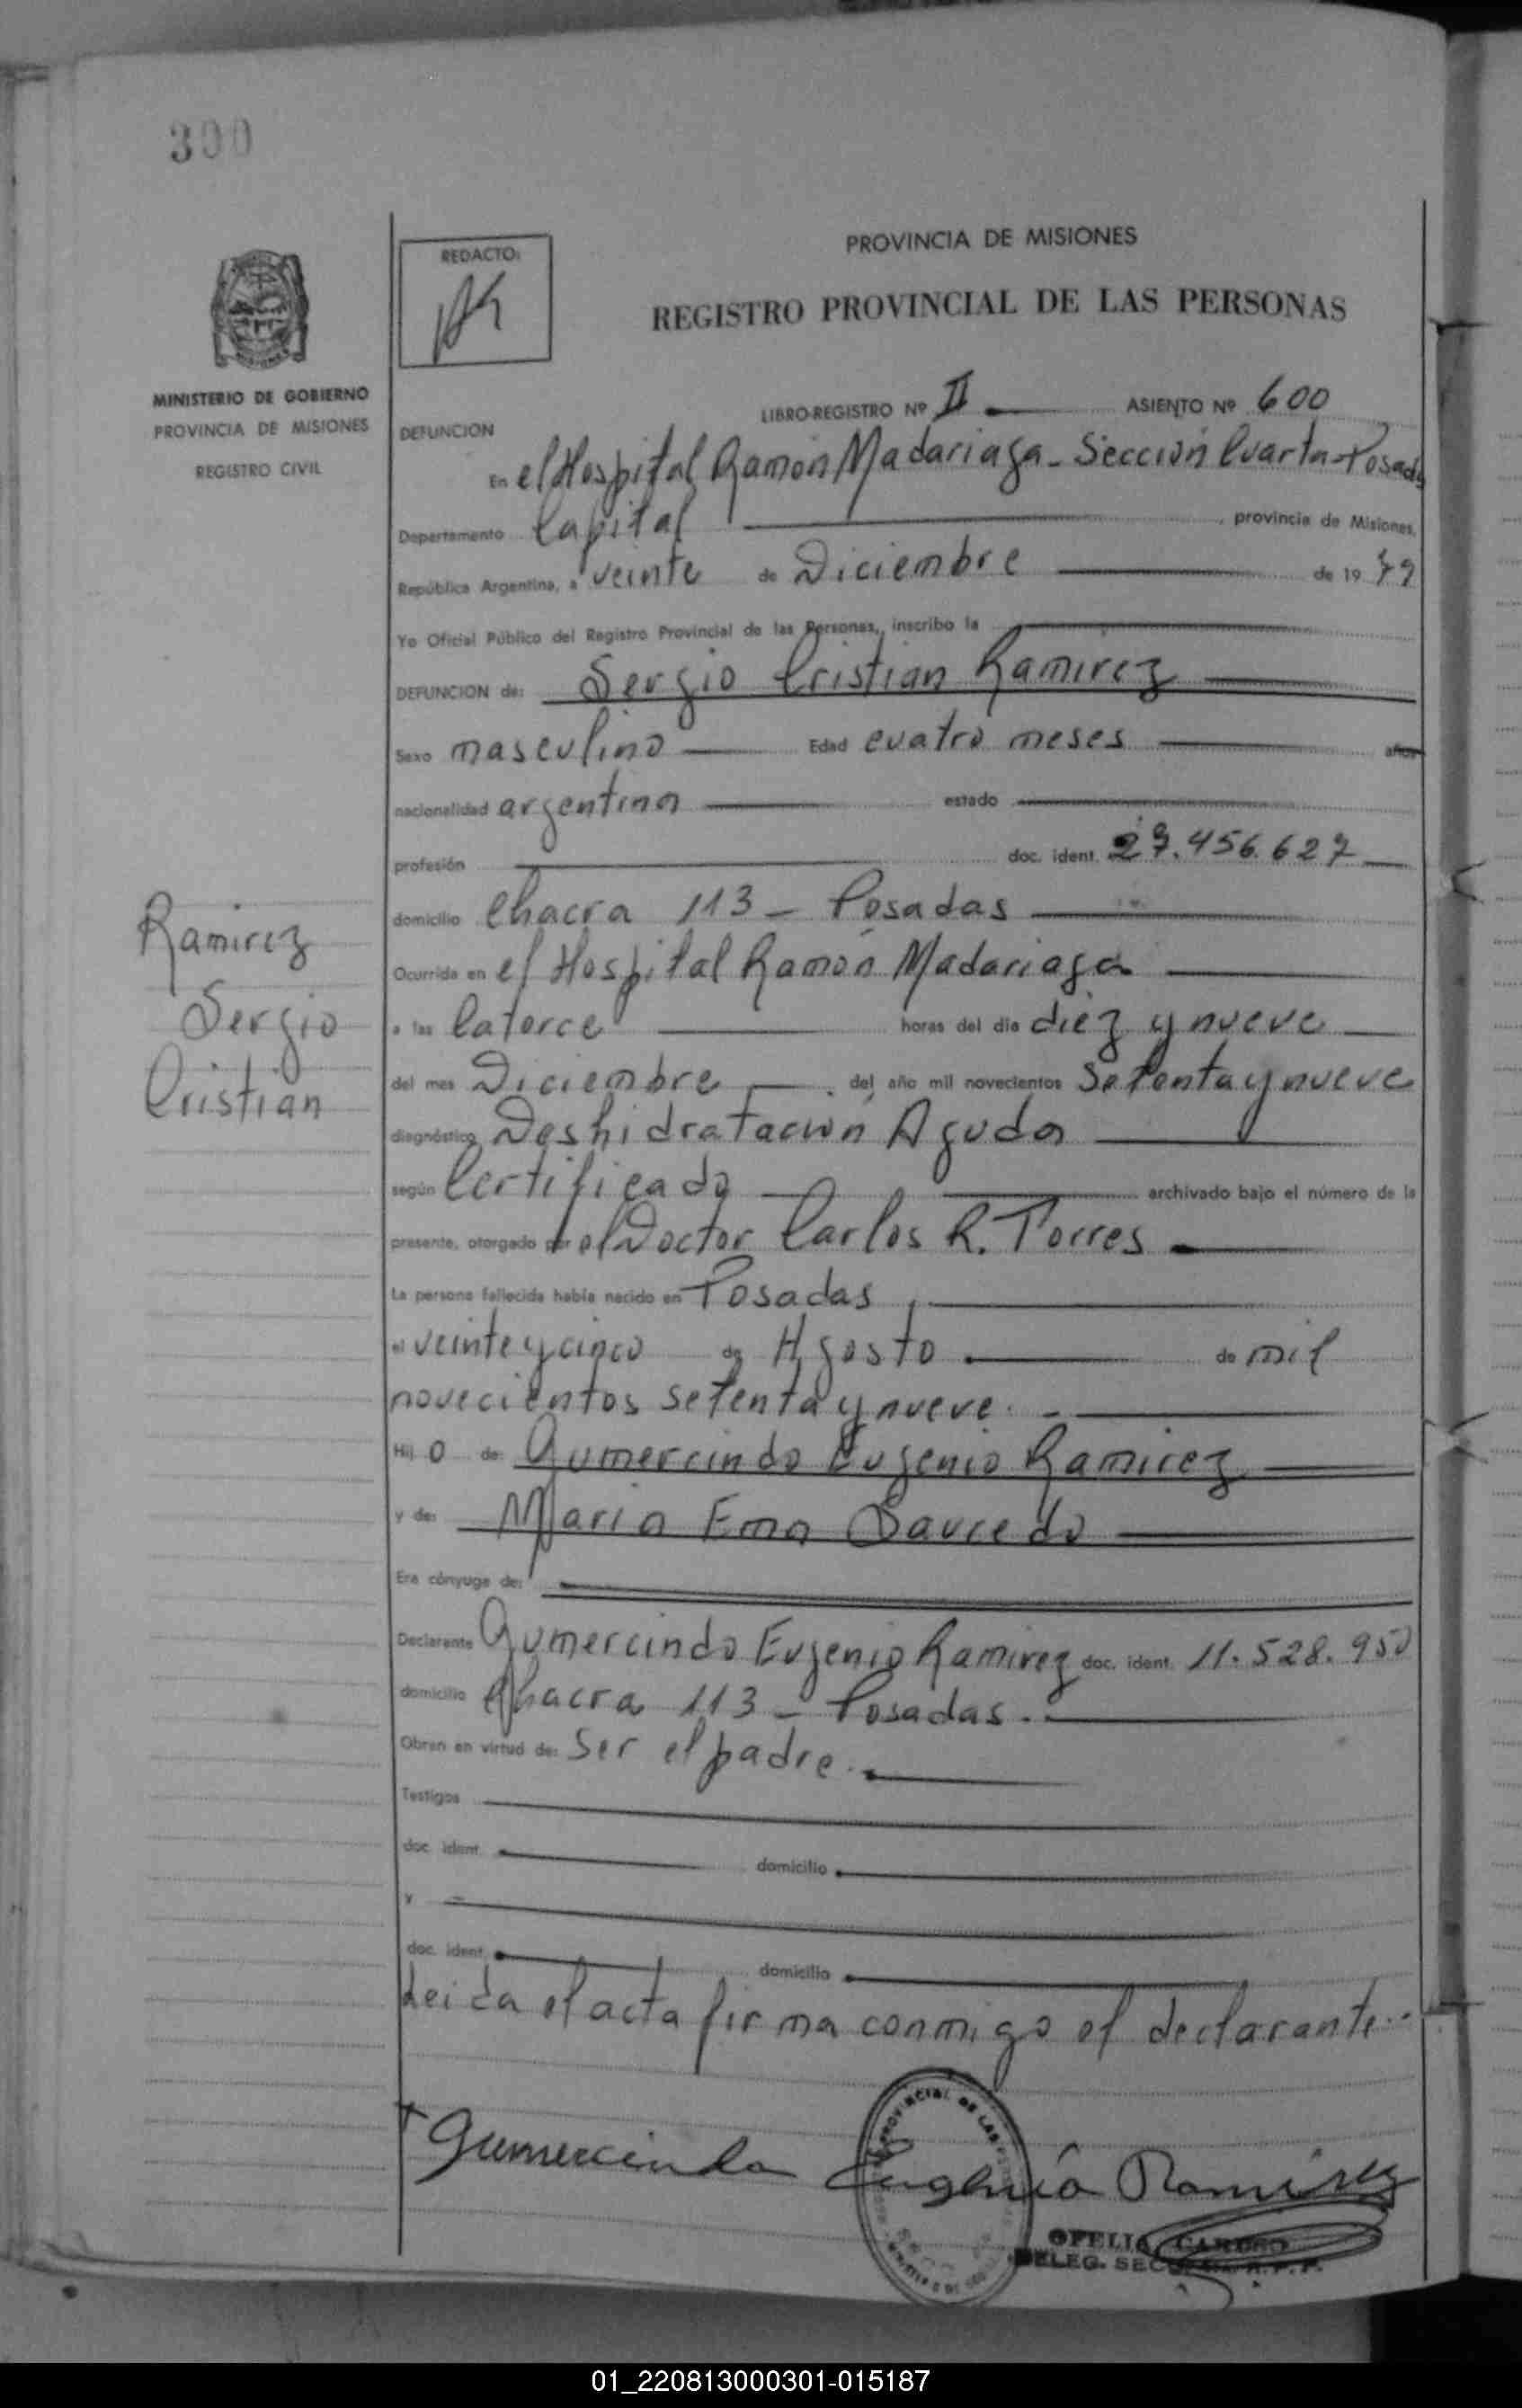 300
REDACTO:
PROVINCIA DE MISIONES
REGISTRO PROVINCIAL DE LAS PERSONAS
MISIONES
MINISTERIO DE GOBIERNO
PROVINCIA DE MISIONES
REGISTRO CIVIL
LIBRO-REGISTRO Nº II ASIENTO Nº 600
DEFUNCION
En el Hospital Ramón Madariaga - Sección Cuarta - Posadas
Departamento Capital , provincia de Misiones,
República Argentina, a veinte de Diciembre de 19 79
Yo Oficial Público del Registro Provincial de las Personas, inscribo la
DEFUNCION de: Sergio Cristian Ramirez
Sexo masculino Edad cuatro meses años
nacionalidad argentina estado
profesión doc. ident. 27.456.627
domicilio Chacra 113 - Posadas
Ramirez
Sergio
Cristian
Ocurrida en el Hospital Ramón Madariaga
a las Catorce horas del día diez y nueve
del mes Diciembre del año mil novecientos Setenta y nueve
diagnóstico Deshidratación Aguda
según Certificado archivado bajo el número de la
presente, otorgado por el Doctor Carlos R. Torres
La persona fallecida había nacido en Posadas,
el veinte y cinco de Agosto de mil
novecientos setenta y nueve. -
Hij o de: Gumercindo Eugenio Ramirez
y de: Maria Ema Saucedo
Era cónyuge de:
Declarante Gumercindo Eugenio Ramirez doc. ident. 11.528.950
domicilio Chacra 113 - Posadas.
Obran en virtud de: Ser el padre.
Testigos
doc. ident. domicilio
y
doc. ident. domicilio
Leida el acta firma conmigo el declarante..
Gumercindo Eugenio Ramirez
OFELIA CARDOZO
DELEG. SECC. R.P.P.
01_220813000301-015187